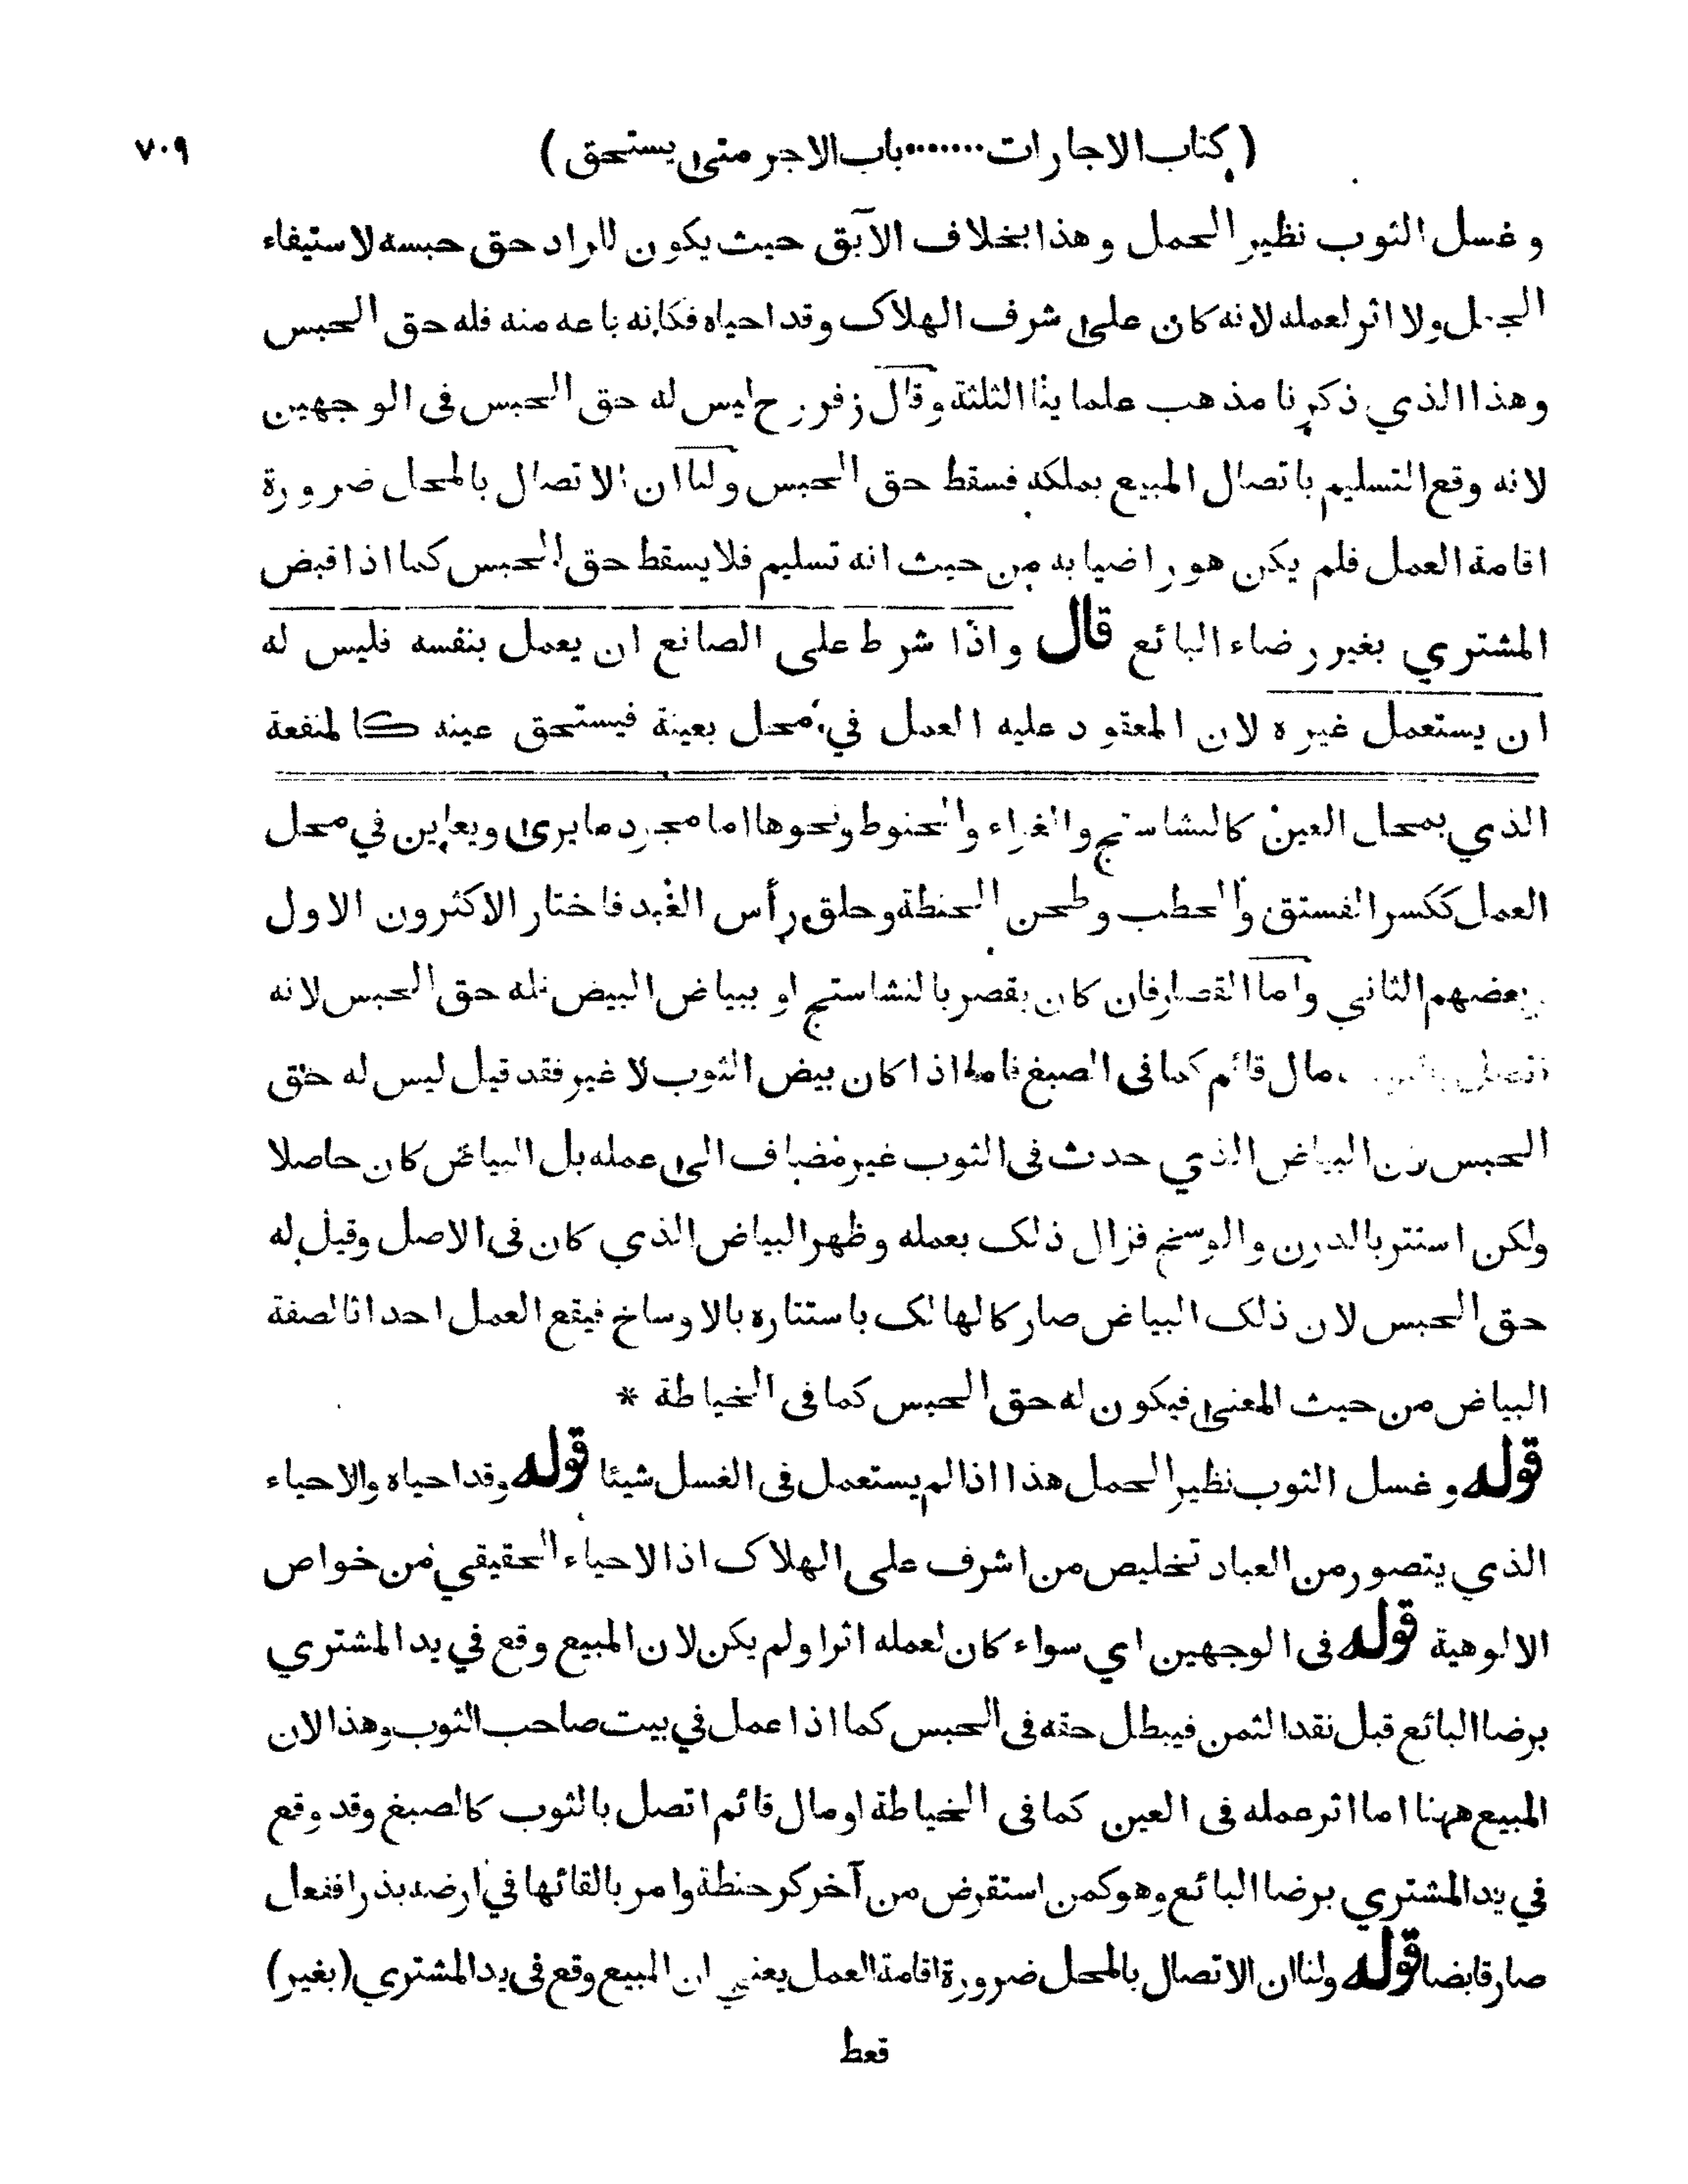 ( كتاب الاجارات ....... باب الاجر متى يستحق ) ٧٠٩
وغسل الثوب نظير الحمل وهذا بخلاف الآبق حيث يكون للراد حق حبسه لاستيفاء
الجعل ولا اثر لعمله لانه كان على شرف الهلاك وقد احياه فكانه باعه منه فله حق الحبس
وهذا الذي ذكرنا مذهب علماينا الثلثة وقال زفر رح ليس له حق الحبس فى الوجهين
لانه وقع التسليم باتصال المبيع بملكه فسقط حق الحبس ولنا ان الاتصال بالمحل ضرورة
اقامة العمل فلم يكن هو راضيا به من حيث انه تسليم فلا يسقط حق الحبس كما اذا قبض
المشتري بغير رضاء البائع قال واذا شرط على الصانع ان يعمل بنفسه فليس له
ان يستعمل غيره لان المعقود عليه العمل في محل بعينة فيستحق عينه كالمنفعة
الذي بمحل العين كالنشاستج والغراء والخيوط ونحوها اما مجرد ما يرى ويعاين في محل
العمل ككسر الفستق والحطب وطحن الحنطة وحلق رأس العبد فاختار الاكثرون الاول
وبعضهم الثاني واما القصار فان كان يقصر بالنشاستج او ببياض البيض فله حق الحبس لانه
مال قائم كما فى الصبغ فاما اذا كان بيض الثوب لا غير فقد قيل ليس له حق
الحبس لان البياض الذي حدث فى الثوب غير مضاف الى عمله بل البياض كان حاصلا
ولكن استتر بالدرن والوسخ فزال ذلك بعمله وظهر البياض الذي كان فى الاصل وقيل له
حق الحبس لان ذلك البياض صار كالهالك باستتاره بالاوساخ فيقع العمل احداثا لصفة
البياض من حيث المعنى فيكون له حق الحبس كما فى الخياطة *
قوله وغسل الثوب نظير الحمل هذا اذا لم يستعمل فى الغسل شيئا قوله وقد احياه والاحياء
الذي يتصور من العباد تخليص من اشرف على الهلاك اذ الاحياء الحقيقي من خواص
الالوهية قوله فى الوجهين اي سواء كان لعمله اثر او لم يكن لان المبيع وقع في يد المشتري
برضا البائع قبل نقد الثمن فيبطل حقه فى الحبس كما اذا عمل في بيت صاحب الثوب وهذا لان
المبيع ههنا اما اثر عمله فى العين كما فى الخياطة او مال قائم اتصل بالثوب كالصبغ وقد وقع
في يد المشتري برضا البائع وهو كمن استقرض من آخر كر حنطة وامر بالقائها في ارضه بذرا ففعل
صار قابضا قوله ولنا ان الاتصال بالمحل ضرورة اقامة العمل يعني ان المبيع وقع فى يد المشتري (بغير)
قعط